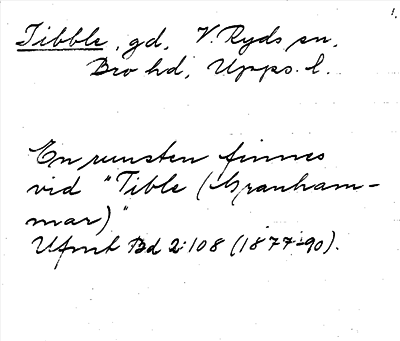 1.
Tibble, gd, V. Ryds sn,
Bro hd, Upps. l.
En runsten finnes
vid "Tible (Granham-
mar)"
Ufmt Bd 2:108 (1877-90).